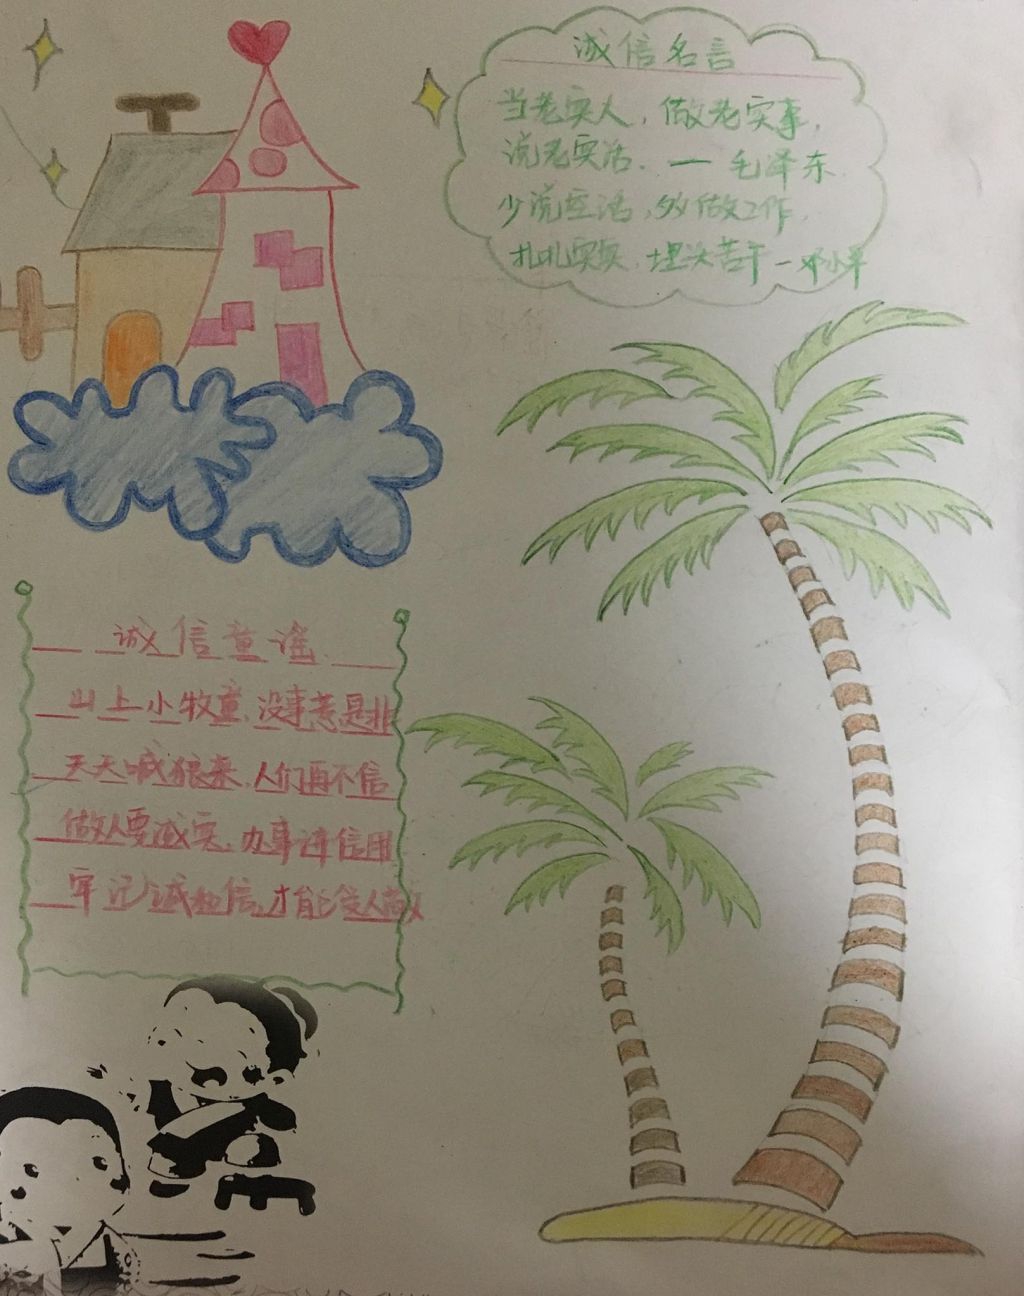 诚信名言
当老实人，做老实事，
说老实话．— 毛泽东．
少说空话，多做工作，
扎扎实实，埋头苦干 — 邓小平
诚信童谣
山上小牧童，没事惹是非
天天喊狼来，人们再不信
做人要诚实，办事讲信用
牢记诚和信，才能受人敬